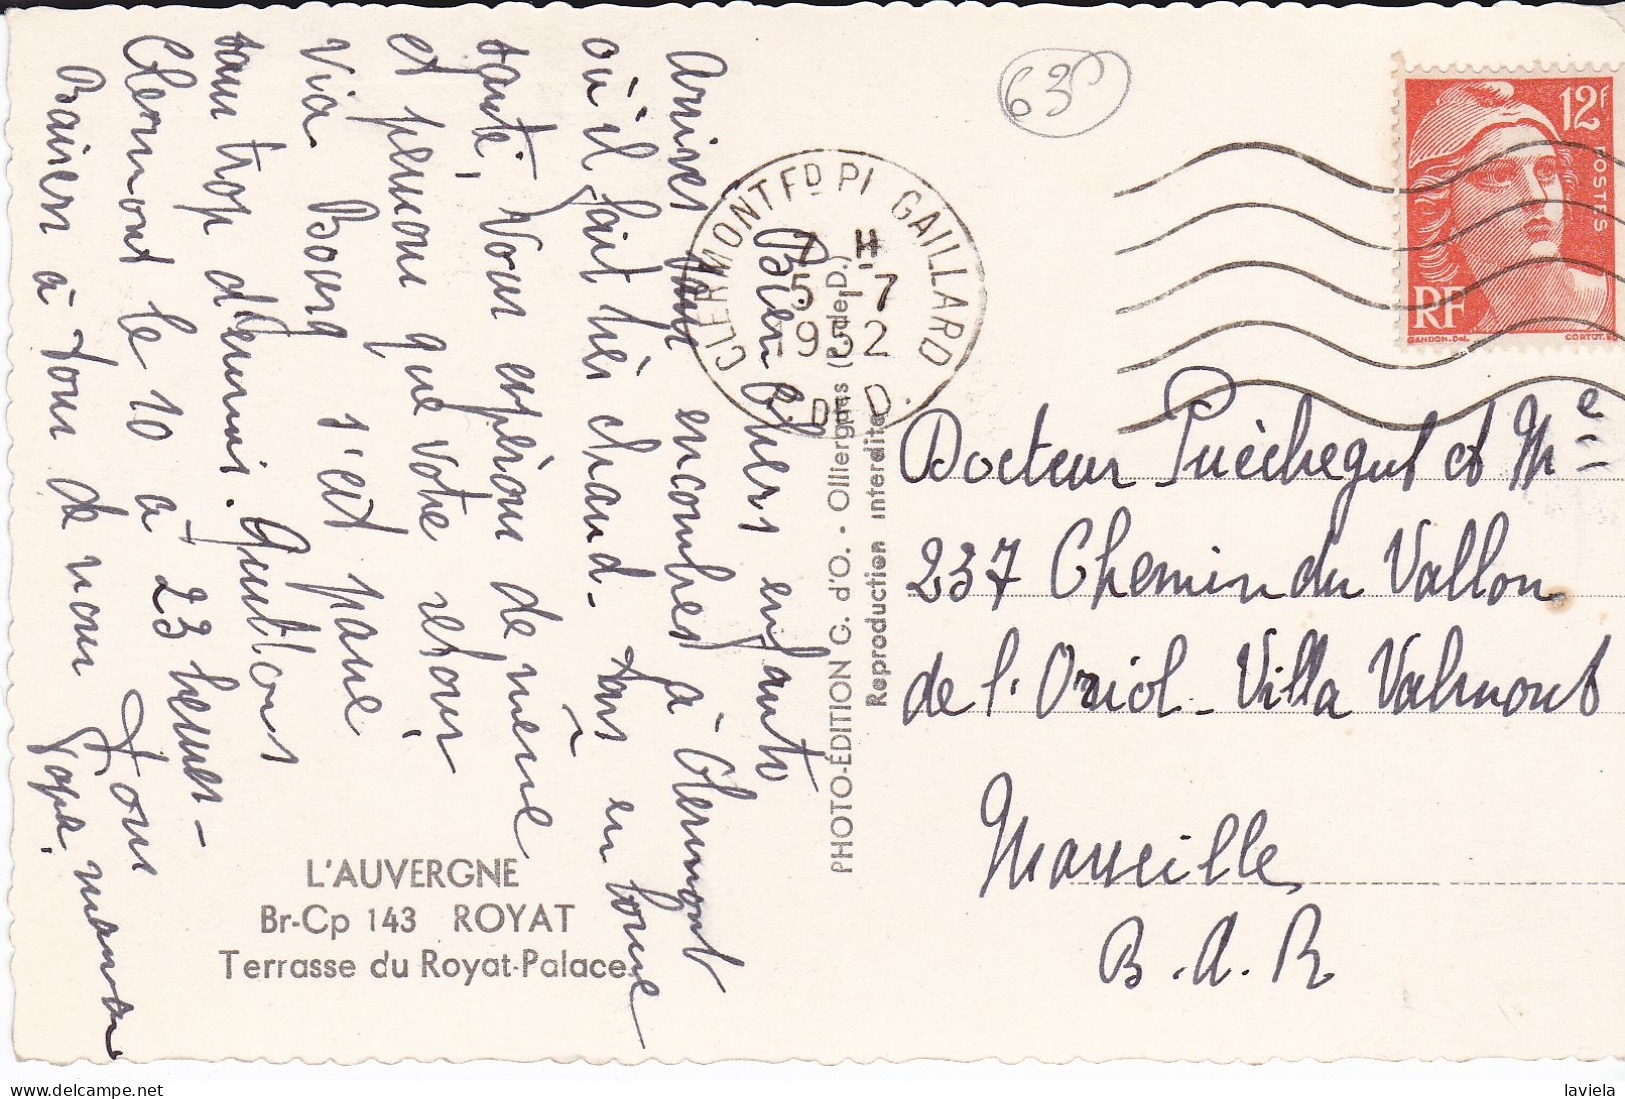 Bien chers enfants
Arrivés sans encombres à Clermont
où il fait très chaud - tous en bonne
santé, Nous espérons de même
et pensons que votre retour
via Bourg s'est passé
sans trop d'ennuis. Quittons
Clermont le 10 à 23 heures -
Baisers à tous de nous tous
Papa, maman
L'AUVERGNE
Br-Cp 143 ROYAT
Terrasse du Royat-Palace
PHOTO-ÉDITION G. d'O. - Olliergues (P.-de-D.)
Reproduction interdite
63
CLERMONT FD PL GAILLARD
7 H
5 -7
1952
P. DE D.
12F
POSTES
RF
GANDON.Del.
CORTOT.SC
Docteur Puèchegut et Me
237 Chemin du Vallon
de l'Oriol - Villa Valmont
Marseille
B.d.R
laviela